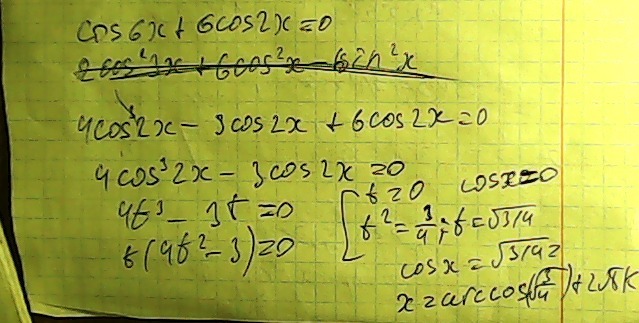 cos6x + 6cos2x = 0
2cos²3x + 6cos²x - 6sin²x
4cos³2x - 3cos2x + 6cos2x = 0
4cos³2x - 3cos2x = 0
4t³ - 3t = 0
t(4t² - 3) = 0
t = 0 cosx = 0
t² = 3/4; t = √3/4
cosx = √3/4 =
x = arccos(√3/4) + 2πk